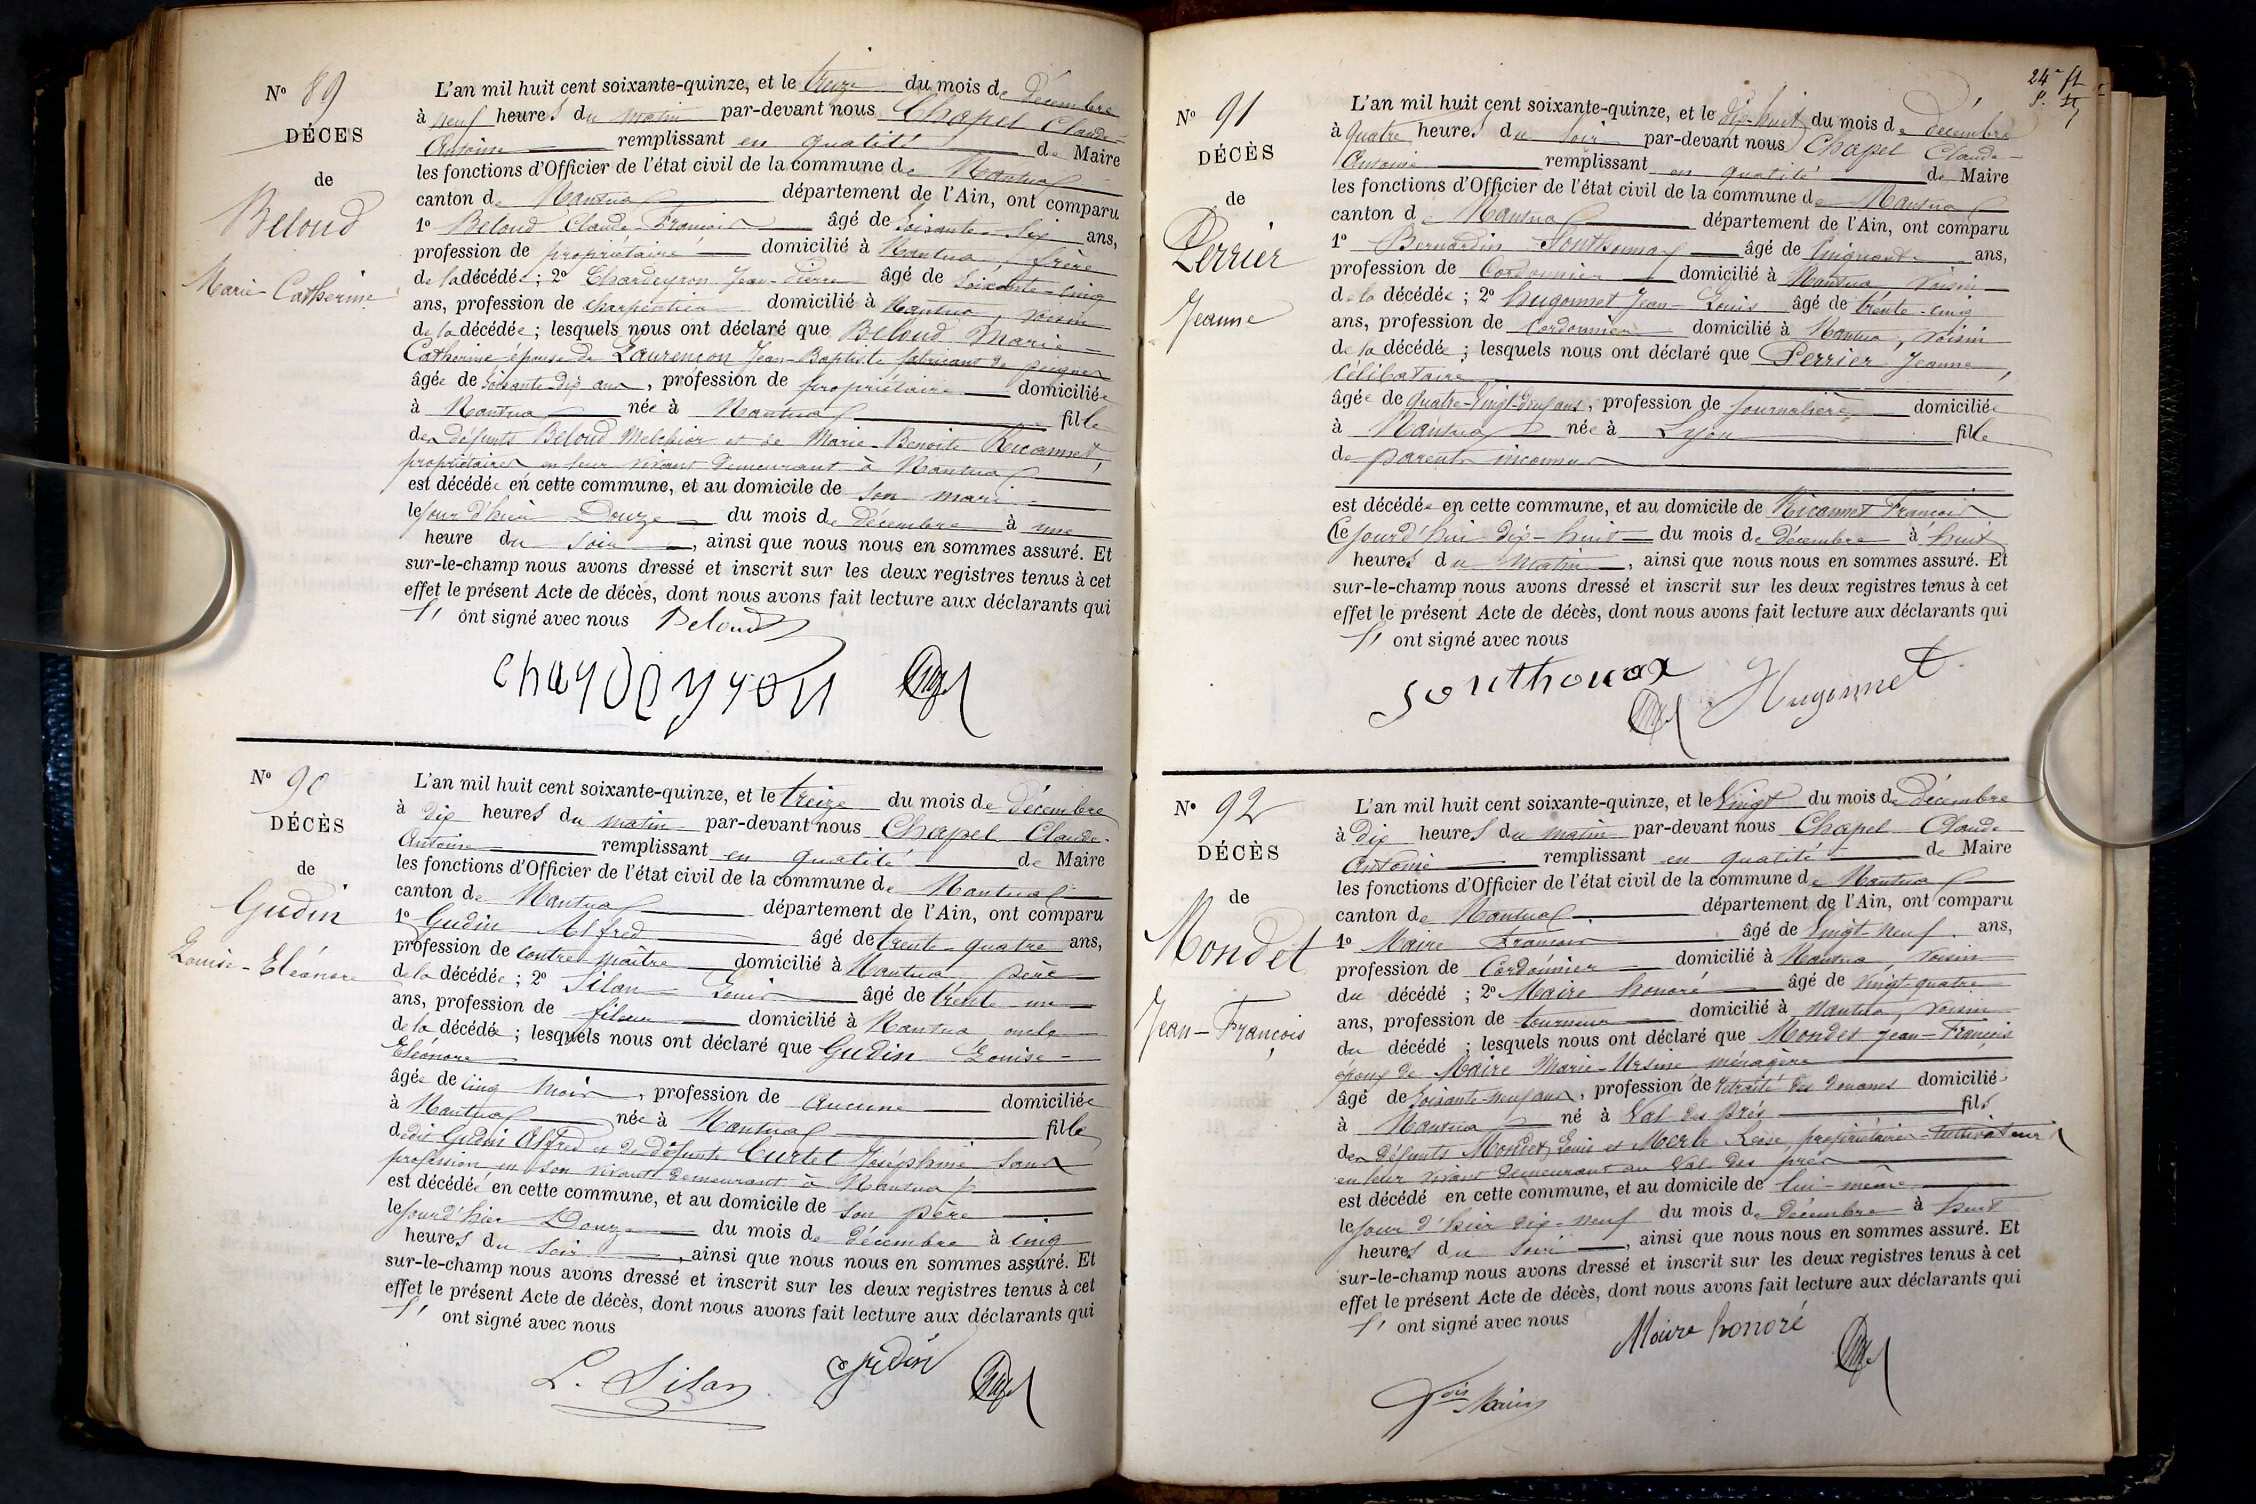 N° 89
DÉCES
de
Beloud
Marie-Catherine
L'an mil huit cent soixante-quinze, et le treize du mois de Décembre
à neuf heures du matin par-devant nous Chapel Claude-
Antoine remplissant en qualité de Maire
les fonctions d'Officier de l'état civil de la commune de Nantua
canton de Nantua département de l'Ain, ont comparu
1° Beloud Claude-François âgé de Soixante-Six ans,
profession de propriétaire domicilié à Nantua, frère
de la décédée; 2° Chardeyron Jean-Pierre âgé de Soixante-cinq
ans, profession de charpentier domicilié à Nantua, voisin
de la décédée; lesquels nous ont déclaré que Beloud Marie-
Catherine épouse de Laurençon Jean-Baptiste, fabricant de peignes
âgée de soixante-dix ans, profession de propriétaire domiciliée
à Nantua née à Nantua fille
des défunts Beloud Melchior et de Marie-Benoite Ricannet,
propriétaires en leur vivant demeurant à Nantua
est décédée en cette commune, et au domicile de son mari
le jour d'hier Douze du mois de décembre à une
heure du soir, ainsi que nous nous en sommes assuré. Et
sur-le-champ nous avons dressé et inscrit sur les deux registres tenus à cet
effet le présent Acte de décès, dont nous avons fait lecture aux déclarants qui
ont signé avec nous Beloud
chardeyron
N° 90
DÉCÈS
de
Gudin
Louise-Eléonore
L'an mil huit cent soixante-quinze, et le treize du mois de Décembre
à dix heures du matin par-devant nous Chapel Claude-
Antoine remplissant en qualité de Maire
les fonctions d'Officier de l'état civil de la commune de Nantua
canton de Nantua département de l'Ain, ont comparu
1° Gudin Alfred âgé de trente-quatre ans,
profession de contre-maître domicilié à Nantua père
de la décédée; 2° Silan Louis âgé de trente-un
ans, profession de fileur domicilié à Nantua oncle
de la décédée; lesquels nous ont déclaré que Gudin Louise-
Eléonore
âgée de cinq mois, profession de aucune domiciliée
à Nantua née à Nantua fille
dudit Gudin Alfred et de défunte Curtet Joséphine sans
profession en son vivant demeurant à Nantua
est décédée en cette commune, et au domicile de son père
le jour d'hier Douze du mois de décembre à cinq
heures du soir, ainsi que nous nous en sommes assuré. Et
sur-le-champ nous avons dressé et inscrit sur les deux registres tenus à cet
effet le présent Acte de décès, dont nous avons fait lecture aux déclarants qui
ont signé avec nous
L. Silan Gudin
24e ft
N° 91
DÉCÈS
de
Perrier
Jeanne
L'an mil huit cent soixante-quinze, et le dix-huit du mois de décembre
à quatre heures du soir par-devant nous Chapel Claude-
Antoine remplissant en qualité de Maire
les fonctions d'Officier de l'état civil de la commune de Nantua
canton de Nantua département de l'Ain, ont comparu
1° Bernardin Southonnax âgé de cinquante ans,
profession de Cordonnier domicilié à Nantua, voisin
de la décédée; 2° hugonnet Jean-Louis âgé de trente-cinq
ans, profession de Cordonnier domicilié à Nantua, voisin
de la décédée; lesquels nous ont déclaré que Perrier Jeanne,
Célibataire
âgée de quatre-vingt-deux ans, profession de journalière domiciliée
à Nantua née à Lyon fille
de parents inconnus
est décédée en cette commune, et au domicile de Ricannet François
Cejourd'hui dix-huit du mois de décembre à huit
heures du matin, ainsi que nous nous en sommes assuré. Et
sur-le-champ nous avons dressé et inscrit sur les deux registres tenus à cet
effet le présent Acte de décès, dont nous avons fait lecture aux déclarants qui
ont signé avec nous
Southonax Hugonnet
N° 92
DÉCÈS
de
Mondet
Jean-François
L'an mil huit cent soixante-quinze, et le Vingt du mois de décembre
à dix heures du matin par-devant nous Chapel Claude
Antoine remplissant en qualité de Maire
les fonctions d'Officier de l'état civil de la commune de Nantua
canton de Nantua département de l'Ain, ont comparu
1° Maire François âgé de Vingt-neuf ans,
profession de Cordonnier domicilié à Nantua, voisin
du décédé; 2° Maire honoré âgé de vingt-quatre
ans, profession de tourneur domicilié à Nantua, voisin
du décédé; lesquels nous ont déclaré que Mondet Jean-François
époux de Maire Marie-Ursine ménagère
âgé de Soixante-neuf ans, profession de retraité des douanes domicilié
à Nantua né à Val des prés fils
des défunts Mondet Louis et Merle Rose propriétaires-cultivateurs
en leur vivant demeurant au Val des prés
est décédé en cette commune, et au domicile de lui-même
le jour d'hier dix-neuf du mois de décembre à huit
heures du soir, ainsi que nous nous en sommes assuré. Et
sur-le-champ nous avons dressé et inscrit sur les deux registres tenus à cet
effet le présent Acte de décès, dont nous avons fait lecture aux déclarants qui
ont signé avec nous
Maire honoré
fois Maire